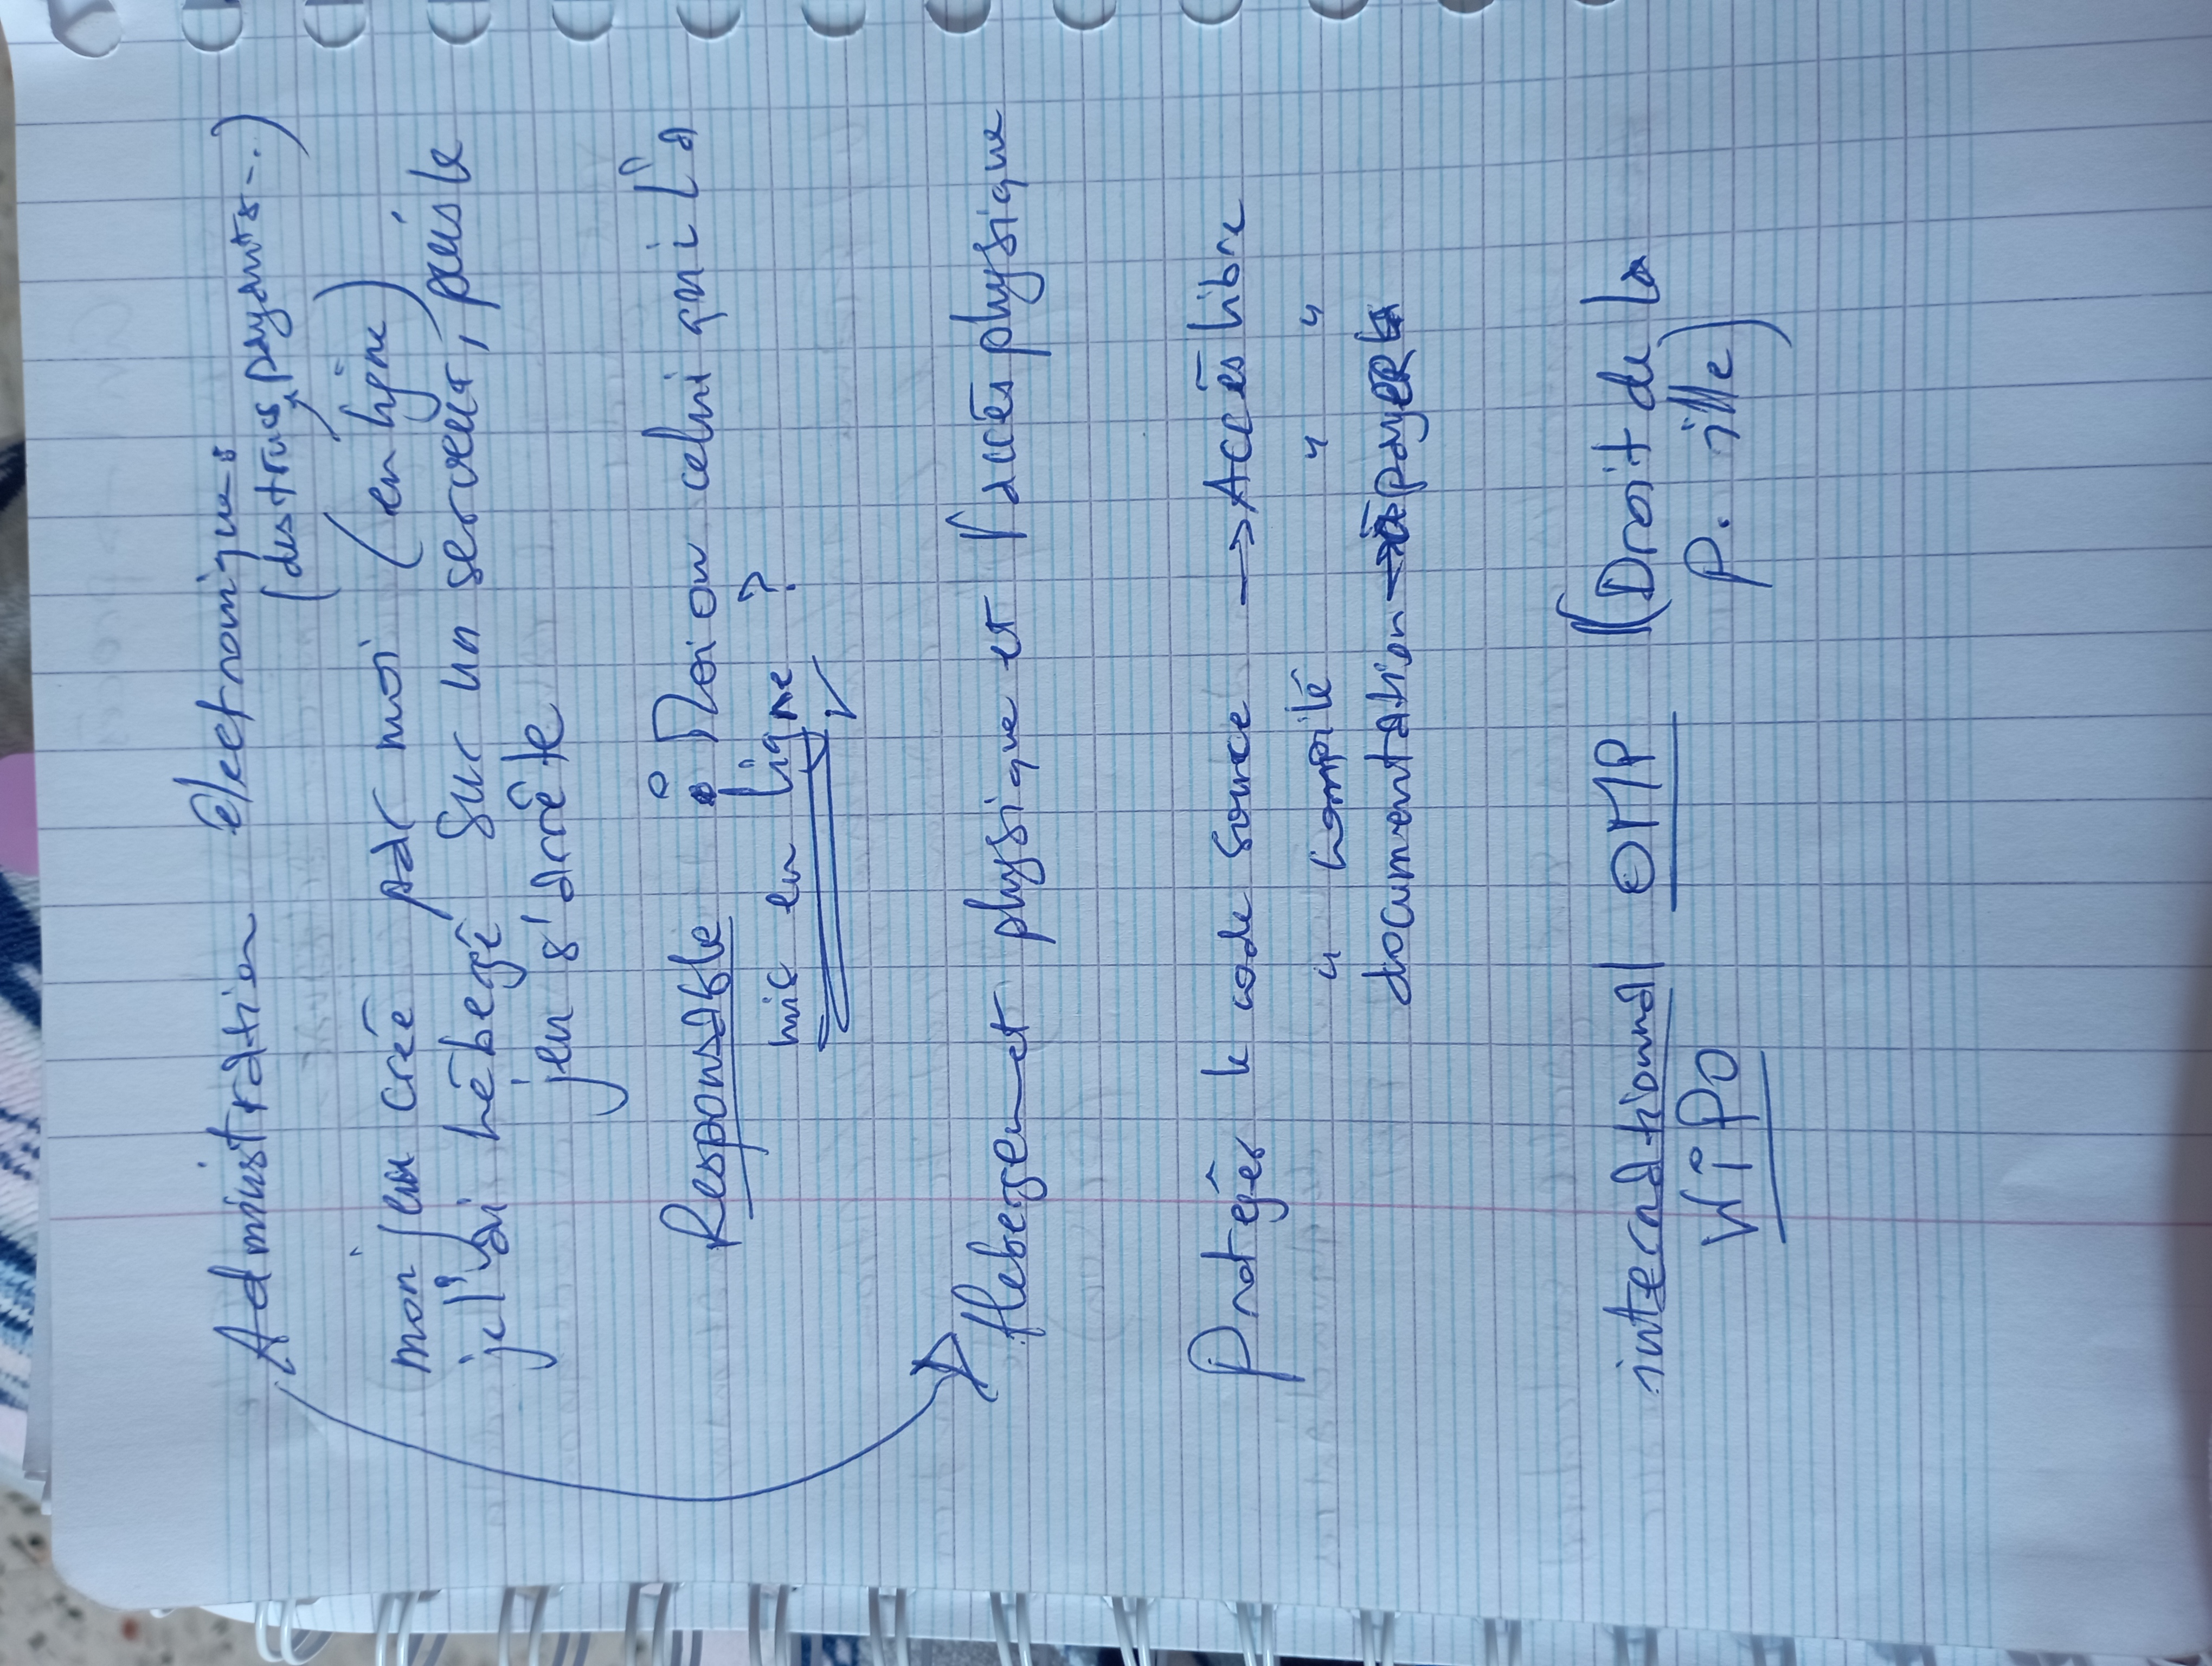 Administration électroniques
(des trucs payants -.)
mon jeu créé par moi (en ligne)
je l'ai hébergé sur un serveur, puis le
jeu s'arrête
Responsable : Moi ou celui qui l'a
mis en ligne ?
Hebergemet physique et l'accès physique
Protegér le code source → Accès libre
" compilé " "
documentation → à payer
internationnal OMP (Droit de la
WiPo P. ille)